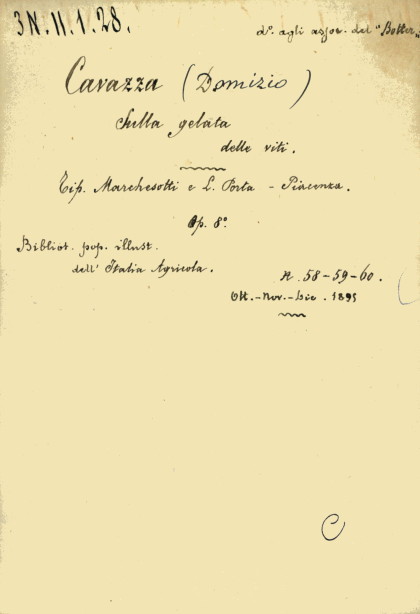 3N.II.1.28.
d° agli assoc. del "Botter"
Cavazza (Domizio)
Sulla gelata
delle viti.
Tip. Marchesotti e L. Porta - Piacenza.
Op. 8°
Bibliot. pop. illust.
dell' Italia Agricola.
N. 58-59-60.
Ott.-Nov.-Dic. 1891
C